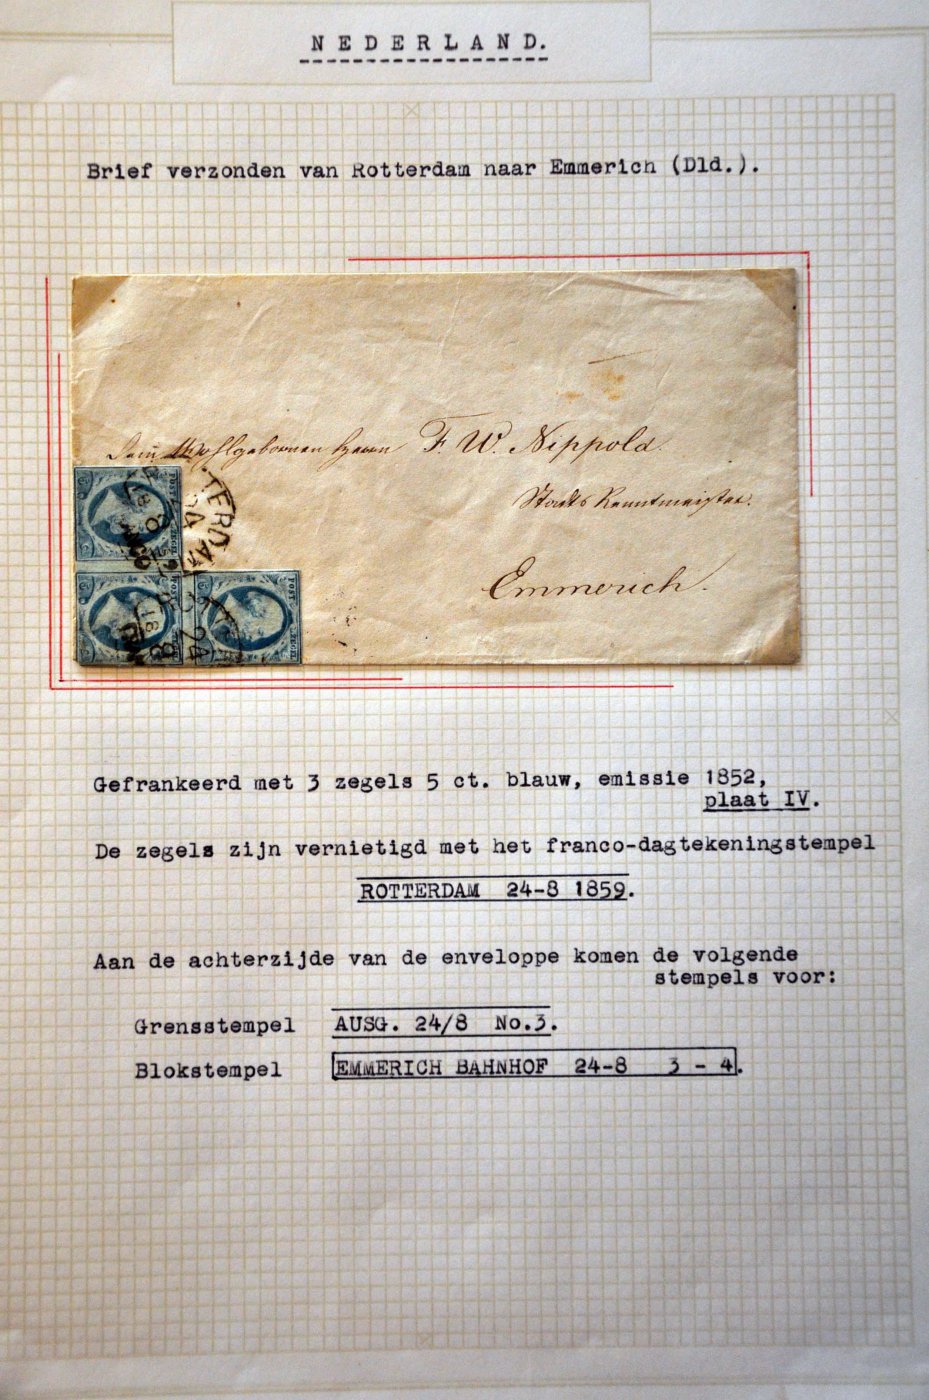 NEDERLAND.
Brief verzonden van Rotterdam naar Emmerich (Dld.).
Wohlgebornen Herrn F. W. Nippold.
Stadts Renntmeister.
Emmerich.
POST ZEGEL
TERDAM
POST ZEGEL
POST ZEGEL
24
8
Gefrankeerd met 3 zegels 5 ct. blauw, emissie 1852,
plaat IV.
De zegels zijn vernietigd met het franco-dagtekeningstempel
ROTTERDAM 24-8 1859.
Aan de achterzijde van de enveloppe komen de volgende
stempels voor:
Grensstempel AUSG. 24/8 No.3.
Blokstempel EMMERICH BAHNHOF 24-8 3 - 4.